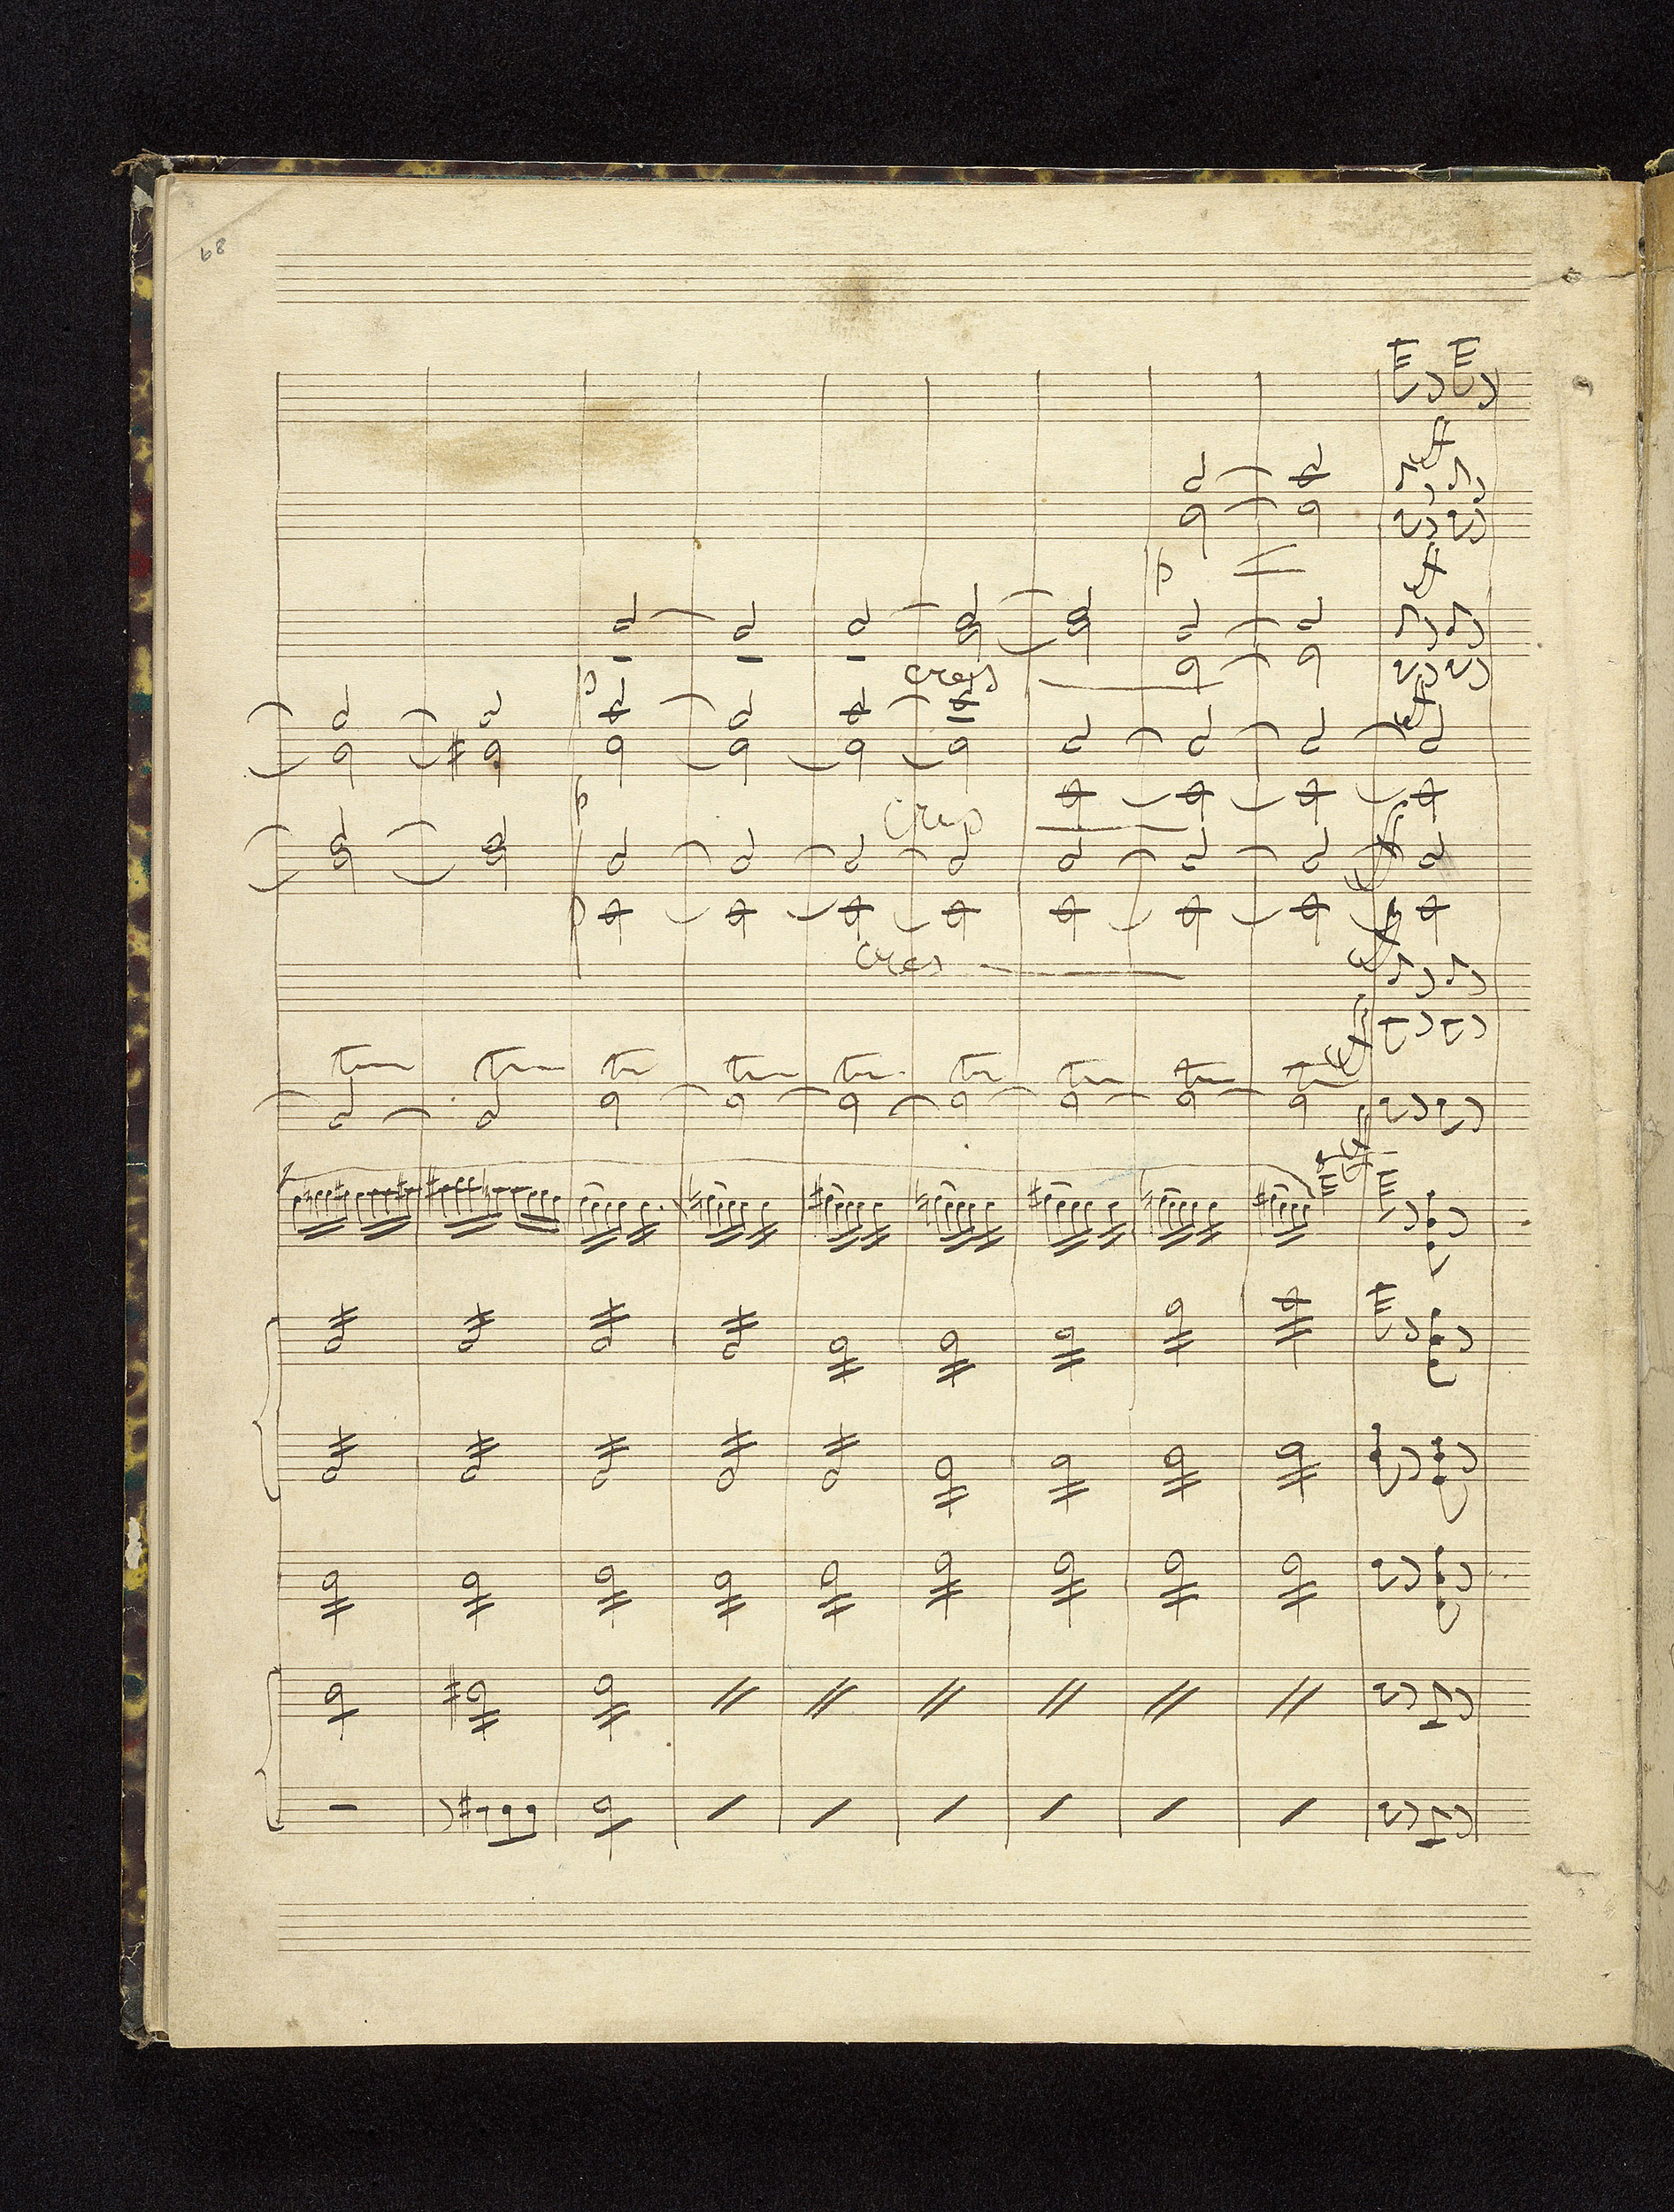 68
ff
p
ff
p
cres
ff
p
cres
ff
p
cres
ff
tr tr tr tr tr tr tr tr tr
ff
ff